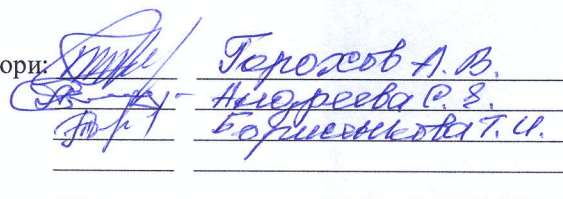 ори: Горохов А. В.
Андреева С. Е.
Борисенкова Т. И.